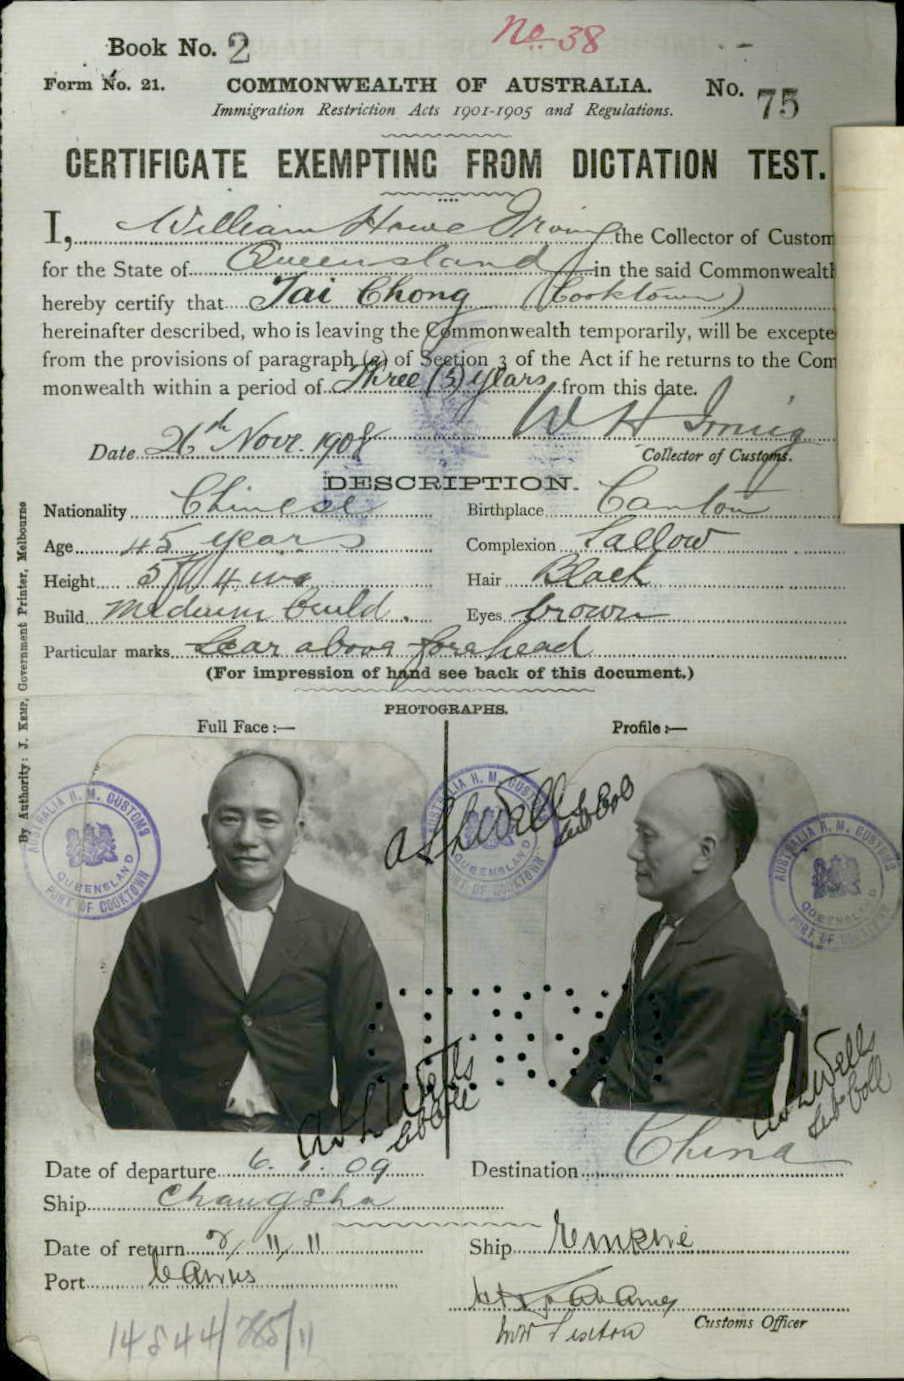 Book No. 2
No. 38
Form No. 21.
COMMONWEALTH OF AUSTRALIA.
No. 75
Immigration Restriction Acts 1901-1905 and Regulations.
CERTIFICATE EXEMPTING FROM DICTATION TEST.
I, William Howe Irving the Collector of Custom
for the State of Queensland in the said Commonwealth
hereby certify that Tai Chong (Cooktown)
hereinafter described, who is leaving the Commonwealth temporarily, will be excepte
from the provisions of paragraph (a) of Section 3 of the Act if he returns to the Com
monwealth within a period of Three (3) years from this date.
W H Irving
Date 26th Novr. 1908
Collector of Customs.
DESCRIPTION.
Nationality Chinese
Birthplace Canton
Age 45 years
Complexion Sallow
Height 5ft 4 ins
Hair Black
Build Medium build.
Eyes brown
Particular marks Scar above forehead
(For impression of hand see back of this document.)
By Authority: J. Kemp, Government Printer, Melbourne
PHOTOGRAPHS.
Full Face:—
Profile:—
AUSTRALIA H. M. CUSTOMS QUEENSLAND PORT OF COOKTOWN
AUSTRALIA H. M. CUSTOMS QUEENSLAND PORT OF COOKTOWN
AUSTRALIA H. M. CUSTOMS QUEENSLAND PORT OF COOKTOWN
Wells Sub Coll
Wells Sub Coll
Wells Sub Coll
Date of departure 6. 1. 09
Destination China
Ship Changsha
Date of return 2/11/11
Ship Empire
Port Cairns
Customs Officer